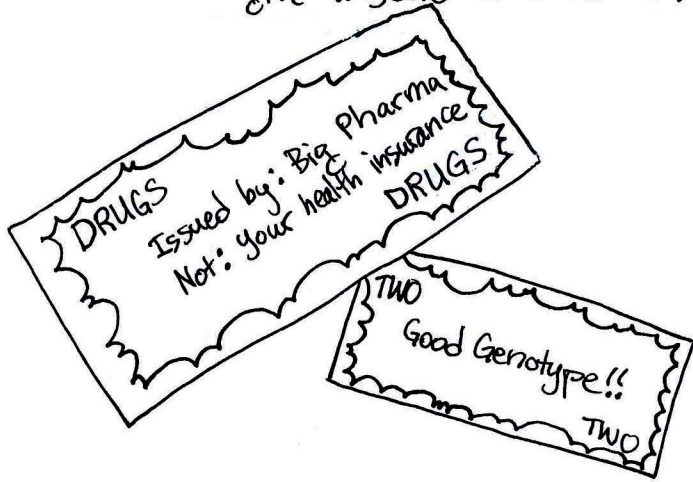 DRUGS
Issued by: Big Pharma
Not: your health insurance
DRUGS
TWO
Good Genotype!!
TWO